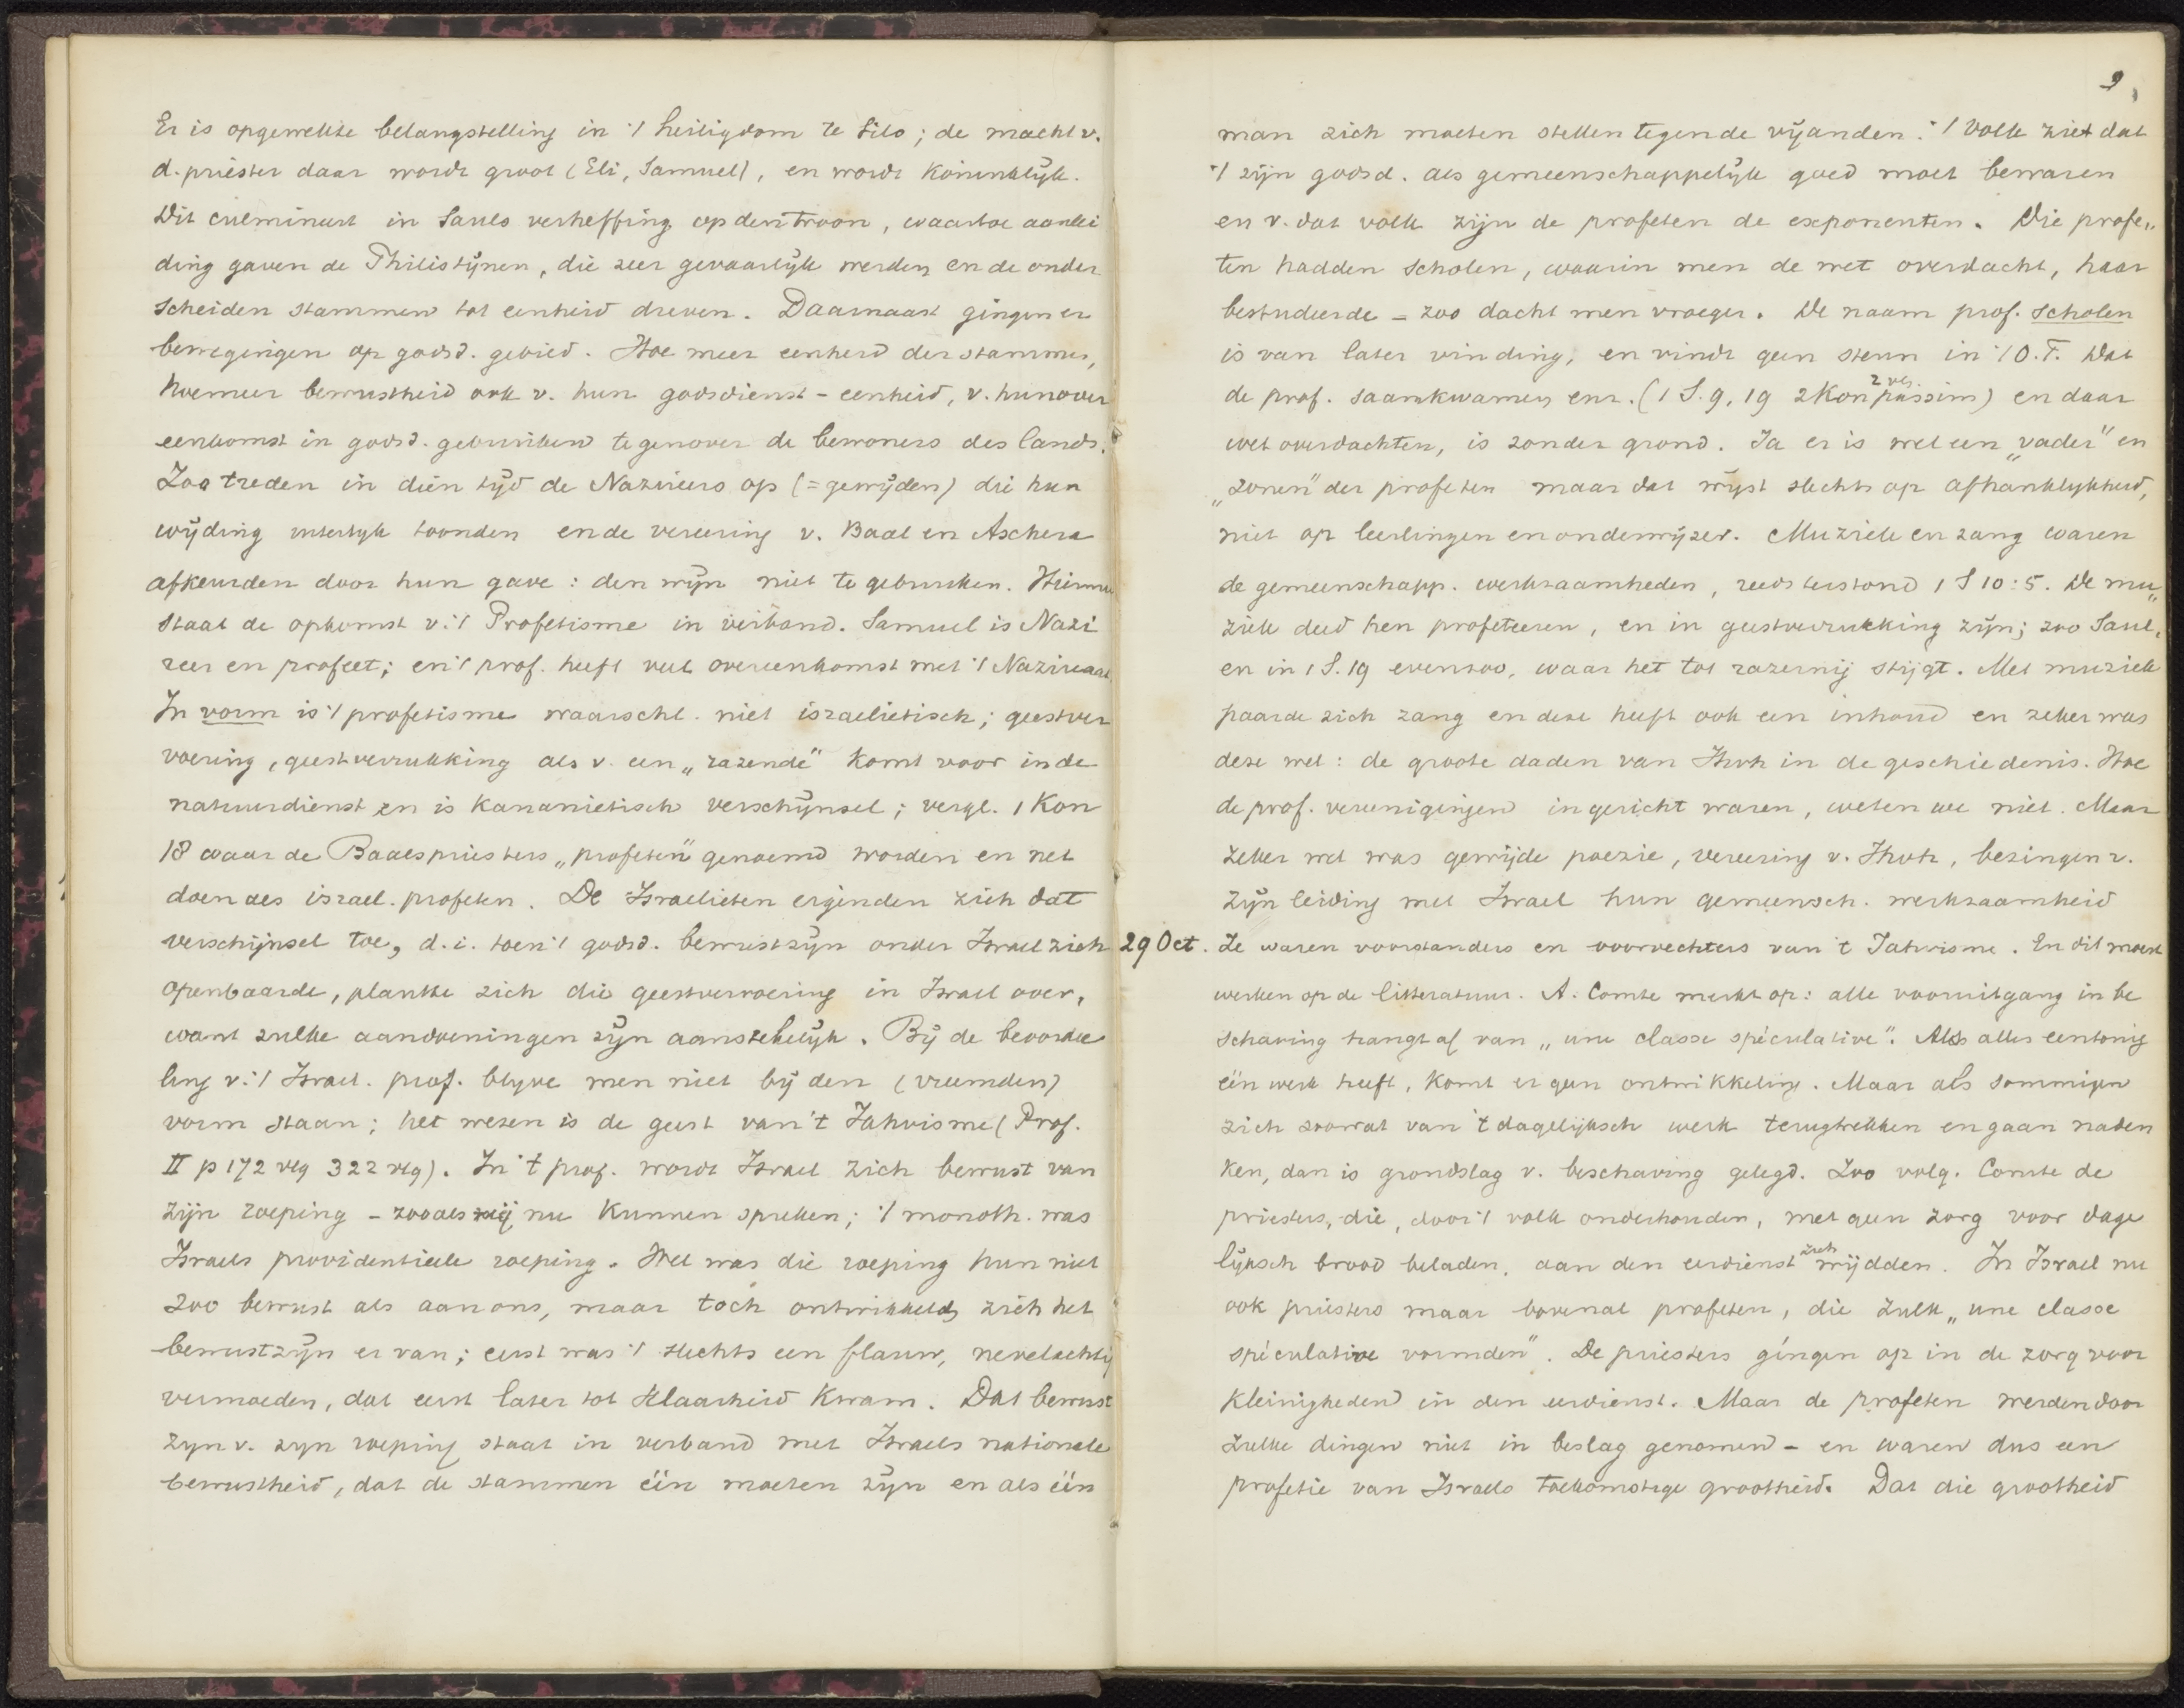 Er is opgewekte belangstelling in 't heiligdom te Silo; de macht v.
d. priester daar wordt groot (Eli, Samuel), en wordt koninklijk.
Dit culmineert in Sauls verheffing op den troon, waartoe aanlei
ding gaven de Philistijnen, die zeer gevaarlijk werden en de onder
scheiden stammen tot eenheid dreven. Daarnaast gingen er
bewegingen op godsd. gebied. Hoe meer eenheid der stammen,
hoemeer bewustheid ook v. hun godsdienst-eenheid, v. hun over
eenkomst in godsd. gebruiken tegenover de bewoners des lands.
Zoo treden in dien tijd de Nazireers op (= gewijden) die hun
wijding uiterlijk toonden en de vereering v. Baal en Aschera
afkeurden door hun gave: den wijn niet te gebruiken. Hiermee
staat de opkomst v. 't Profetisme in verband. Samuel is Nazi
reer en profeet; en 't prof. heeft veel overeenkomst met 't Nazireaat.
In vorm is 't profetisme waarschl. niet israelietisch; geestver
voering, geestverrukking als v. een „razende" komt voor in de
natuurdienst en is Kananietisch verschijnsel; vergl. 1 Kon
18 waar de Baalspriesters „profeten" genoemd worden en net
doen als israel. profeten. De Israelieten eigenden zich dat
verschijnsel toe, d.i. toen 't godsd. bewustzijn onder Israel zich
openbaarde, plantte zich die geestvervoering in Israel over,
want zulke aandoeningen zijn aanstekelijk. Bij de beoordee
ling v. 't Israel. prof. blijve men niet bij den (vreemden)
vorm staan; het wezen is de geest van 't Jahvisme (Prof.
II p 172 vlg 322 vlg). In 't prof. wordt Israel zich bewust van
zijn roeping - zooals wij nu kunnen spreken; 't monoth. was
Israels providentieele roeping. Wel was die roeping hun niet
zoo bewust als aan ons, maar toch ontwikkelde zich het
bewustzijn er van; eerst was 't slechts een flauw, nevelachtig
vermoeden, dat eerst later tot klaarheid kwam. Dat bewust
zijn v. zijn roeping staat in verband met Israels nationale
bewustheid, dat de stammen één moeten zijn en als één
9
man zich moeten stellen tegen de vijanden. 't Volk ziet dat
't zijn godsd. als gemeenschappelijk goed moet bewaren
en v. dat volk zijn de profeten de exponenten. Die profe„
ten hadden scholen, waarin men de wet overdacht, haar
bestudeerde - zoo dacht men vroeger. De naam prof. scholen
is van later vinding, en vindt geen steun in 't O.T. Dat
de prof. saamkwamen enz. (1 S. 9, 19 2 Kon 2 vlg. passim) en daar
wet overdachten, is zonder grond. Ja er is wel een „vader" en
„zonen" der profeten maar dat wijst slechts op afhanklijkheid,
niet op leerlingen en onderwijzer. Muziek en zang waren
de gemeenschapp. werkzaamheden, reeds terstond 1 S 10:5. De mu„
ziek deed hen profeteeren, en in geestverrukking zijn; zoo Saul,
en in 1 S. 19 evenzoo, waar het tot razernij stijgt. Met muziek
paarde zich zang en deze heeft ook een inhoud en zeker was
deze wel: de groote daden van Jhvh in de geschiedenis. Hoe
de prof. vereenigingen ingericht waren, weten we niet. Maar
zeker wel was gewijde poezie, vereering v. Jhvh, bezingen v.
zijn leiding met Israel hun gemeensch. werkzaamheid
29 Oct. Ze waren voorstanders en voorvechters van 't Jahvisme. En dit moest
werken op de litteratuur. A. Comte merkt op: alle vooruitgang in be
schaving hangt af van „une classe spéculative". Als alles eentonig
één werk heeft, komt er geen ontwikkeling. Maar als sommigen
zich zoowat van 't dagelijksch werk terugtrekken en gaan naden
ken, dan is grondslag v. beschaving gelegd. Zoo volg. Comte de
priesters, die, door 't volk onderhouden, met geen zorg voor dage
lijksch brood beladen, aan den eerdienst zich wijdden. In Israel nu
ook priesters maar bovenal profeten, die zulk „une classe
spéculative vormden". De priesters gingen op in de zorg voor
kleinigheden in den eerdienst. Maar de profeten werden door
zulke dingen niet in beslag genomen - en waren dus een
profetie van Israels toekomstige grootheid. Dat die grootheid